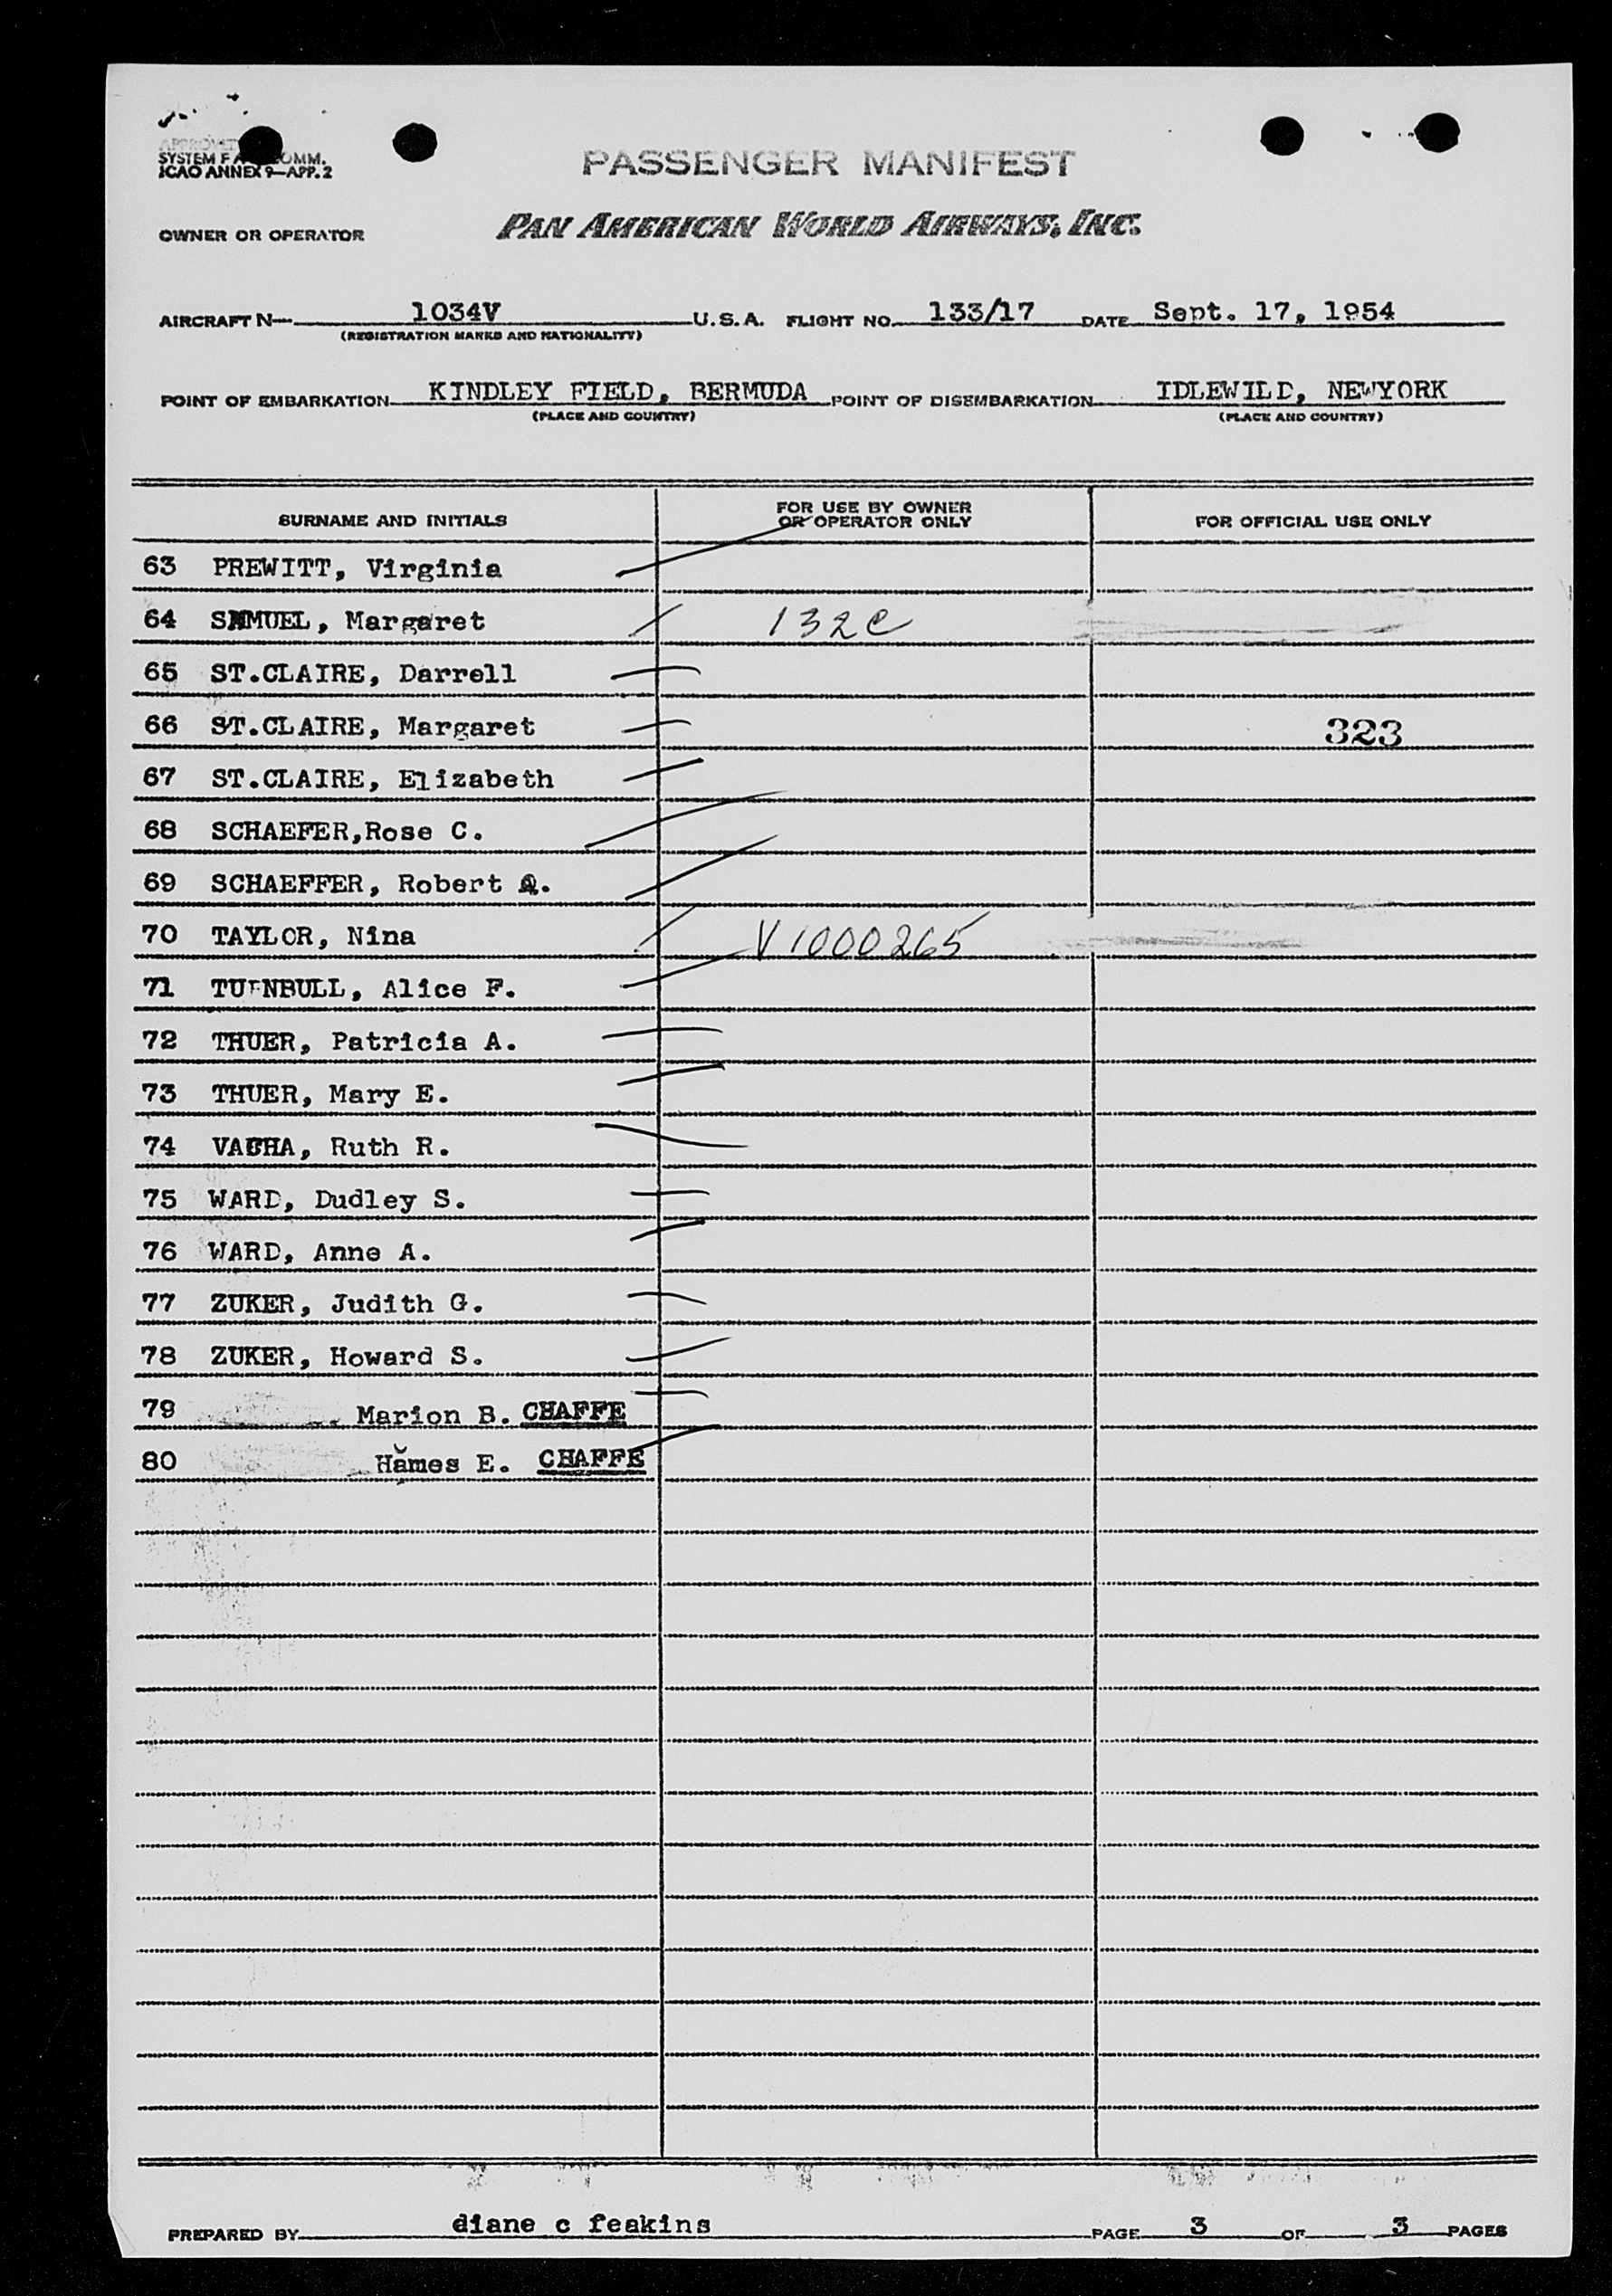 SYSTEM F
OMM.
ICAO ANNEX 9—APP. 2
PASSENGER MANIFEST
OWNER OR OPERATOR PAN AMERICAN WORLD AIRWAYS, INC.
AIRCRAFT N— 1034V U.S.A. FLIGHT NO. 133/17 DATE Sept. 17, 1954
(REGISTRATION MARKS AND NATIONALITY)
POINT OF EMBARKATION KINDLEY FIELD, BERMUDA POINT OF DISEMBARKATION IDLEWILD, NEWYORK
(PLACE AND COUNTRY) (PLACE AND COUNTRY)
SURNAME AND INITIALS FOR USE BY OWNER OR OPERATOR ONLY FOR OFFICIAL USE ONLY
63 PREWITT, Virginia
64 SAMUEL, Margaret 132C
65 ST.CLAIRE, Darrell
66 ST.CLAIRE, Margaret 323
67 ST.CLAIRE, Elizabeth
68 SCHAEFER,Rose C.
69 SCHAEFFER, Robert
70 TAYLOR, Nina V1000265
71 TURNBULL, Alice F.
72 THUER, Patricia A.
73 THUER, Mary E.
74 Ruth R.
75 WARD, Dudley S.
76 WARD, Anne A.
77 ZUKER, Judith G.
78 ZUKER, Howard S.
79 Marion B. CHAFFE
80 Hames E. CHAFFE
PREPARED BY diane c feakins PAGE 3 OF 3 PAGES